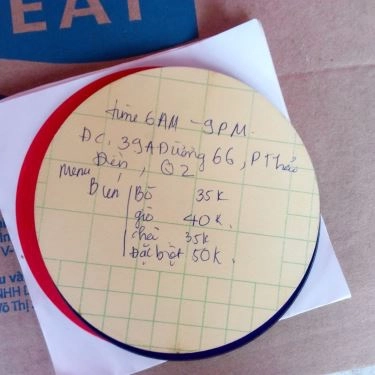 EAT
time 6AM - 9PM.
ĐC. 39A Đường 66, P Thảo
Điền, Q2
menu
Bún | Bò 35K
giò 40K.
chả 35K
Đặc biệt 50K.